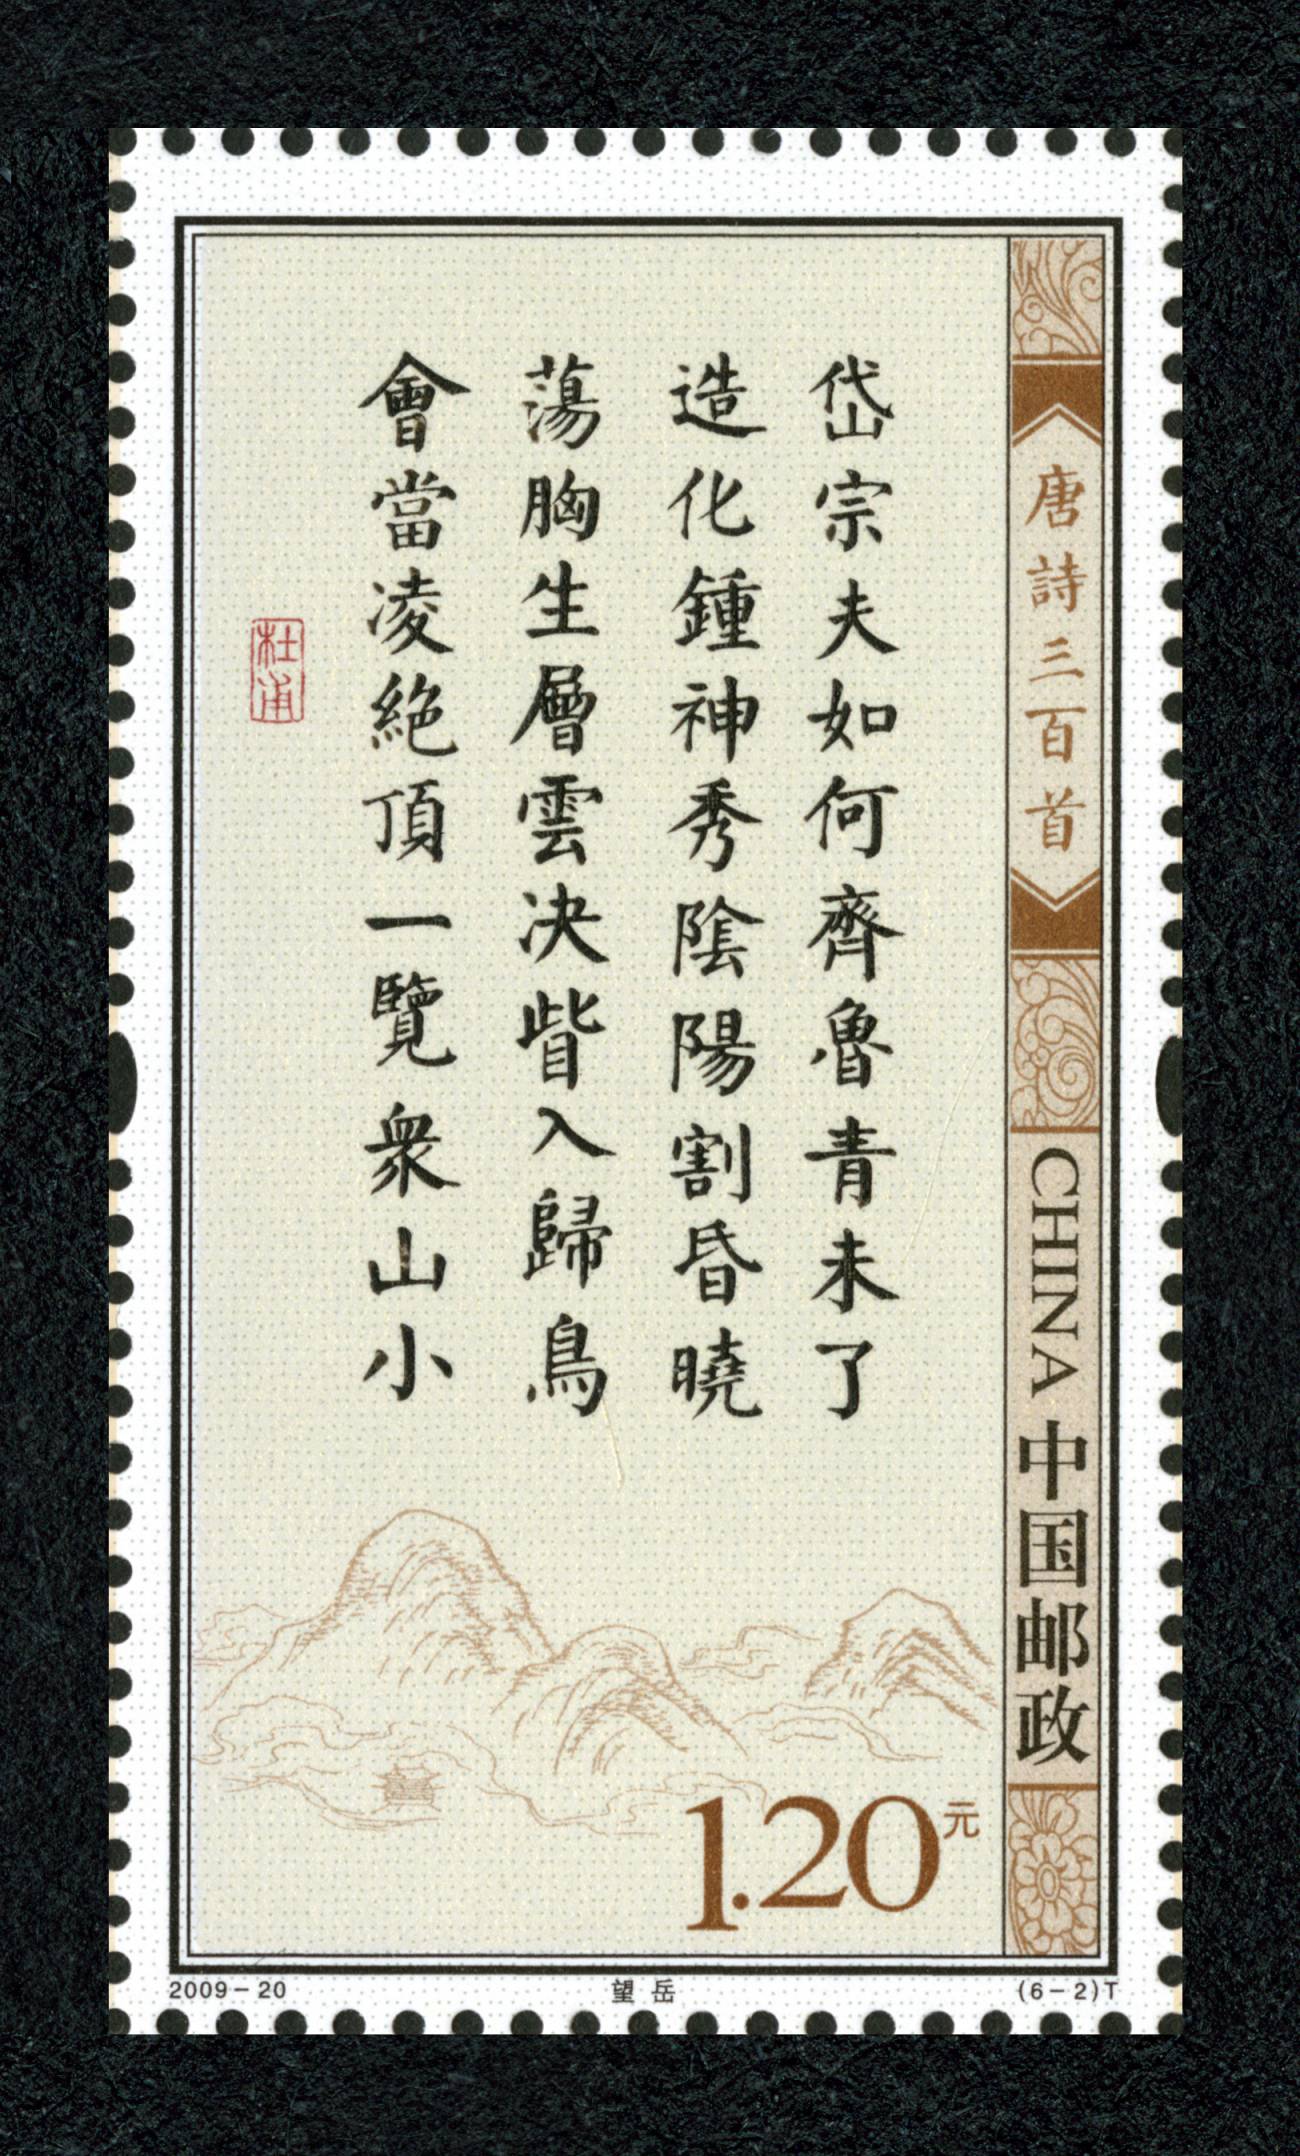 唐詩三百首
CHINA 中国邮政
岱宗夫如何齊魯青未了
造化鍾神秀陰陽割昏曉
蕩胸生層雲決眥入歸鳥
會當凌絕頂一覽衆山小
杜甫
1.20元
2009-20
望岳
(6-2)T